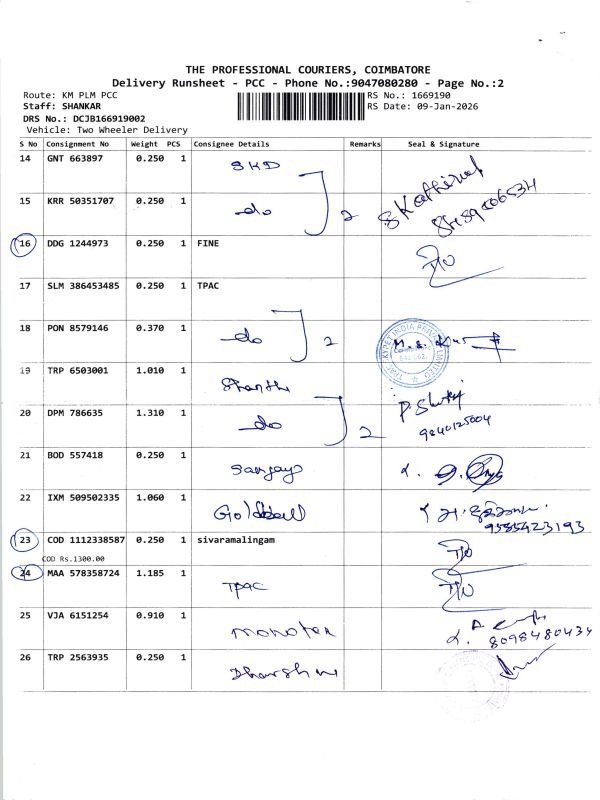 THE PROFESSIONAL COURIERS, COIMBATORE
Delivery Runsheet - PCC - Phone No.:9047080280 - Page No.:2
Route: KM PLM PCC
RS No.: 1669190
Staff: SHANKAR
RS Date: 09-Jan-2026
DRS No.: DCJB166919002
Vehicle: Two Wheeler Delivery
S No Consignment No Weight PCS Consignee Details Remarks Seal & Signature
14 GNT 663897 0.250 1 SKD
15 KRR 50351707 0.250 1 do 2
16 DDG 1244973 0.250 1 FINE
17 SLM 386453485 0.250 1 TPAC
18 PON 8579146 0.370 1 do 2
19 TRP 6503001 1.010 1 Shanthi
20 DPM 786635 1.310 1 do 2
9840125004
21 BOD 557418 0.250 1 Sanjay
22 IXM 509502335 1.060 1
9585423193
23 COD 1112338587 0.250 1 sivaramalingam
COD Rs.1300.00
24 MAA 578358724 1.185 1 TPAC
25 VJA 6151254 0.910 1
8098480434
26 TRP 2563935 0.250 1